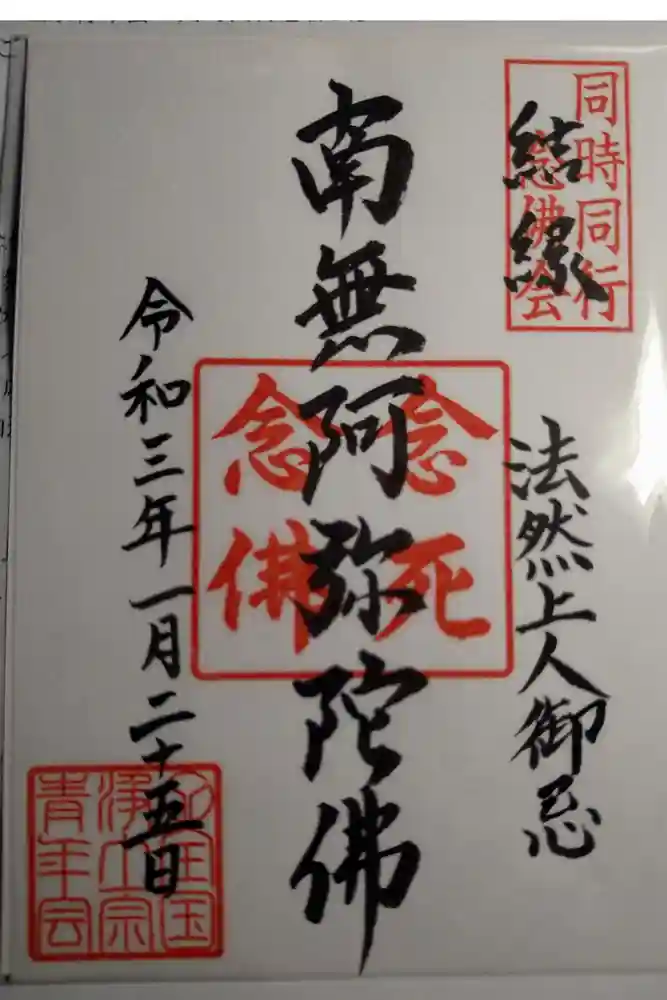 同時同行
念佛会
結縁
法然上人御忌
南無阿弥陀佛
念死
念佛
令和三年一月二十五日
全国
浄土宗
青年会